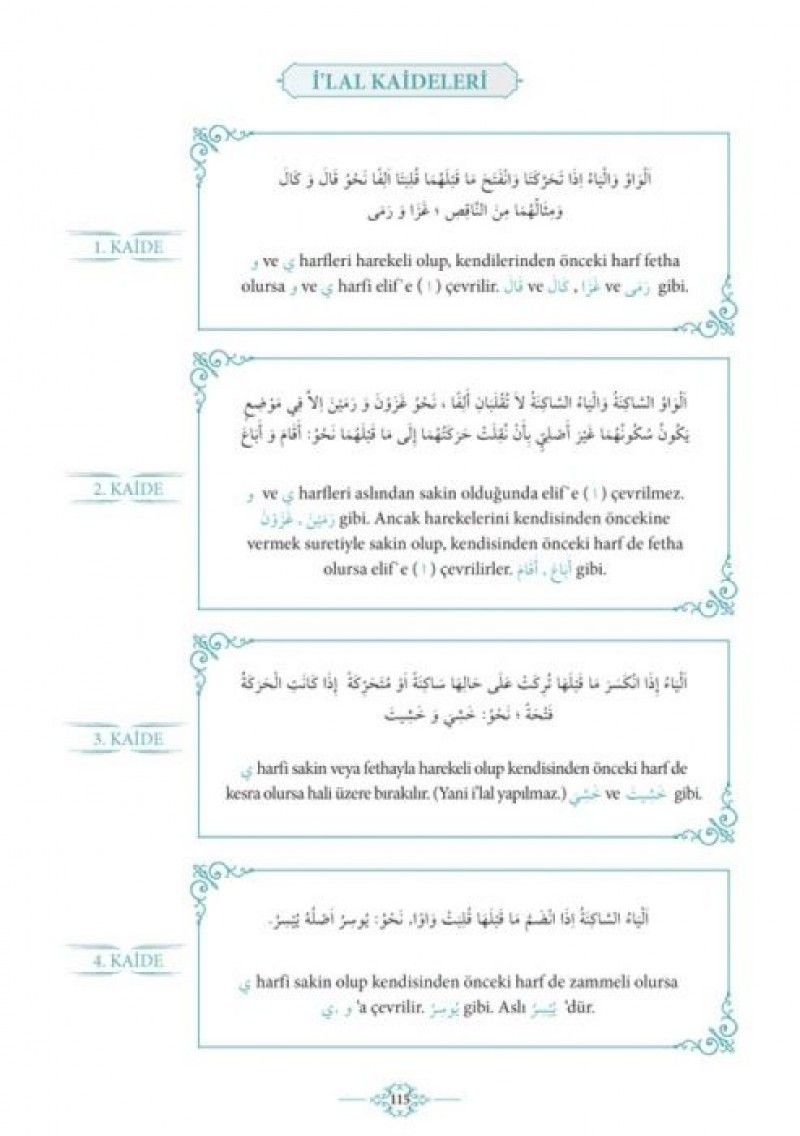 İ'LAL KAİDELERİ
1. KAİDE
اَلْوَاوُ وَالْيَاءُ إِذَا تَحَرَّكَتَا وَانْفَتَحَ مَا قَبْلَهُمَا قُلِبَتَا اَلِفًا نَحْوُ قَالَ وَ كَالَ
وَمِثَالُهُمَا مِنَ النَّاقِصِ ؛ غَزَا وَ رَمَى
و ve ي harfleri harekeli olup, kendilerinden önceki harf fetha
olursa و ve ي harfi elif`e ( ا ) çevrilir. قَالَ ve كَالَ , غَزَا ve رَمَى gibi.
2. KAİDE
اَلْوَاوُ السَّاكِنَةُ وَالْيَاءُ السَّاكِنَةُ لاَ تُقْلَبَانِ أَلِفًا ، نَحْوُ غَزَوْنَ وَ رَمَيْنَ اِلاَّ فِي مَوْضِعٍ
يَكُونُ سُكُونُهُمَا غَيْرَ أَصْلِيٍّ بِأَنْ نُقِلَتْ حَرَكَتُهُمَا إِلَى مَا قَبْلَهُمَا نَحْوُ: أَقَامَ وَ أَبَاعَ
و ve ي harfleri aslından sakin olduğunda elif`e ( ا ) çevrilmez.
رَمَيْنَ , غَزَوْنَ gibi. Ancak harekelerini kendisinden öncekine
vermek suretiyle sakin olup, kendisinden önceki harf de fetha
olursa elif`e ( ا ) çevrilirler. أَبَاعَ , أَقَامَ gibi.
3. KAİDE
اَلْيَاءُ إِذَا انْكَسَرَ مَا قَبْلَهَا تُرِكَتْ عَلَى حَالِهَا سَاكِنَةً اَوْ مُتَحَرِّكَةً إِذَا كَانَتِ الْحَرَكَةُ
فَتْحَةً ؛ نَحْوُ: خَشِيَ وَ خَشِيتَ
ي harfi sakin veya fethayla harekeli olup kendisinden önceki harf de
kesra olursa hali üzere bırakılır. (Yani i'lal yapılmaz.) خَشِيَ ve خَشِيتَ gibi.
4. KAİDE
اَلْيَاءُ السَّاكِنَةُ إِذَا انْضَمَّ مَا قَبْلَهَا قُلِبَتْ وَاوًا، نَحْوُ: يُوسِرُ اَصْلُهُ يُيْسِرُ.
ي harfi sakin olup kendisinden önceki harf de zammeli olursa
ي, و 'a çevrilir. يُوسِرُ gibi. Aslı يُيْسِرُ 'dür.
115